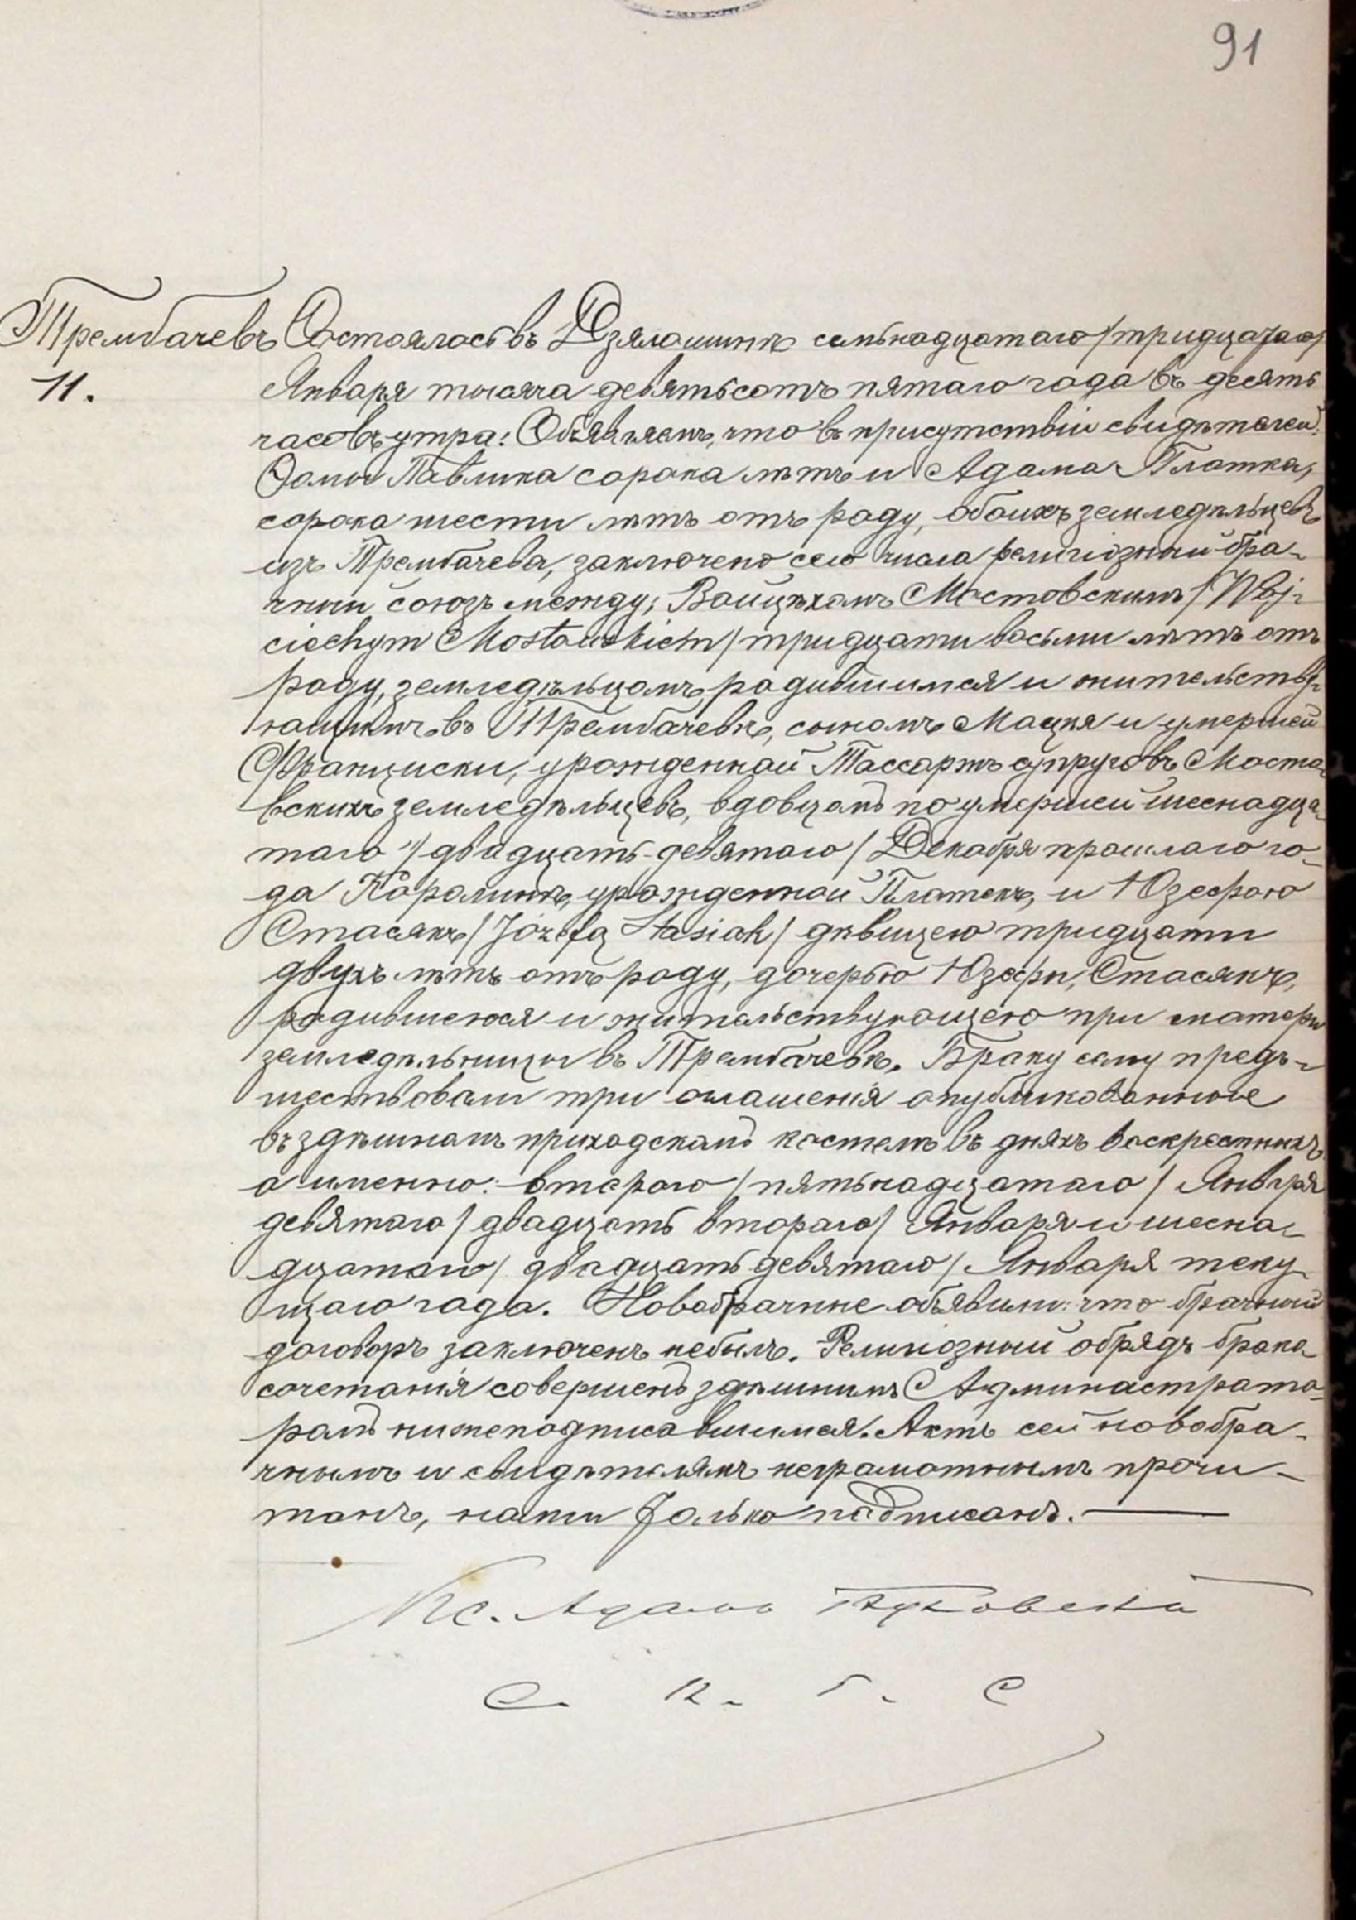 91
Трембачевъ Состоялось въ Дзялошинѣ семьнадцатаго /тридцатаго/
11. Января тысяча девятьсотъ пятаго года въ десять
часовъ утра. Объявляемъ, что въ присутствіи свидѣтелей:
Ѳомы Павлика сорока лѣтъ и Адама Платка,
сорока шести лѣтъ отъ роду, обоихъ земледѣльцевъ
изъ Трембачева, заключено сего числа религіозный бра-
чный союзъ между: Войцѣхомъ Мостовскимъ /Woj-
ciechym Mostowskiem/ тридцати восьми лѣтъ отъ
роду, земледѣльцомъ, родившимся и жительству-
ющимъ въ Трембачевѣ, сыномъ Мацея и умершей
Франциски, урожденной Тассаржъ супруговъ Мосто-
вскихъ земледѣльцевъ, вдовцомъ по умершей шеснадца-
таго /двадцать девятаго/ Декабря прошлаго го-
да Каролинѣ, урожденной Платекъ, и Юзефою
Стасякъ /Józefą Stasiak/ дѣвицею тридцати
двухъ лѣтъ отъ роду, дочерью Юзефы, Стасякъ,
родившеюся и жительствующею при матери
земледѣльницы въ Трембачевѣ. Браку сему предъ-
шествовали три оглашенія опубликованные
въ здѣшномъ приходскомъ костелѣ въ дняхъ воскресныхъ
а именно: второго /пятьнадцатаго/ Января
девятаго /двадцать втораго/ Января и шесна-
дцатаго /двадцать девятаго/ Января теку-
щаго года. Новобрачные объявили: что брачный
договоръ заключенъ небылъ. Религіозный обрядъ брако
сочетанія совершенъ здѣшнимъ Администрато-
ромъ нижеподписавшимся. Актъ сей новобра-
чнымъ и свидѣтелямъ неграмотнымъ прочи-
танъ, нами только подписанъ.
Кс. Адамъ
С. П. Г. С